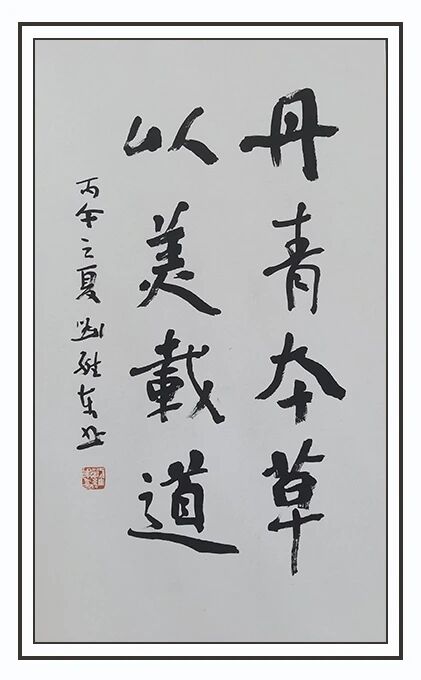 丹青本草
以美載道
丙午之夏 劉